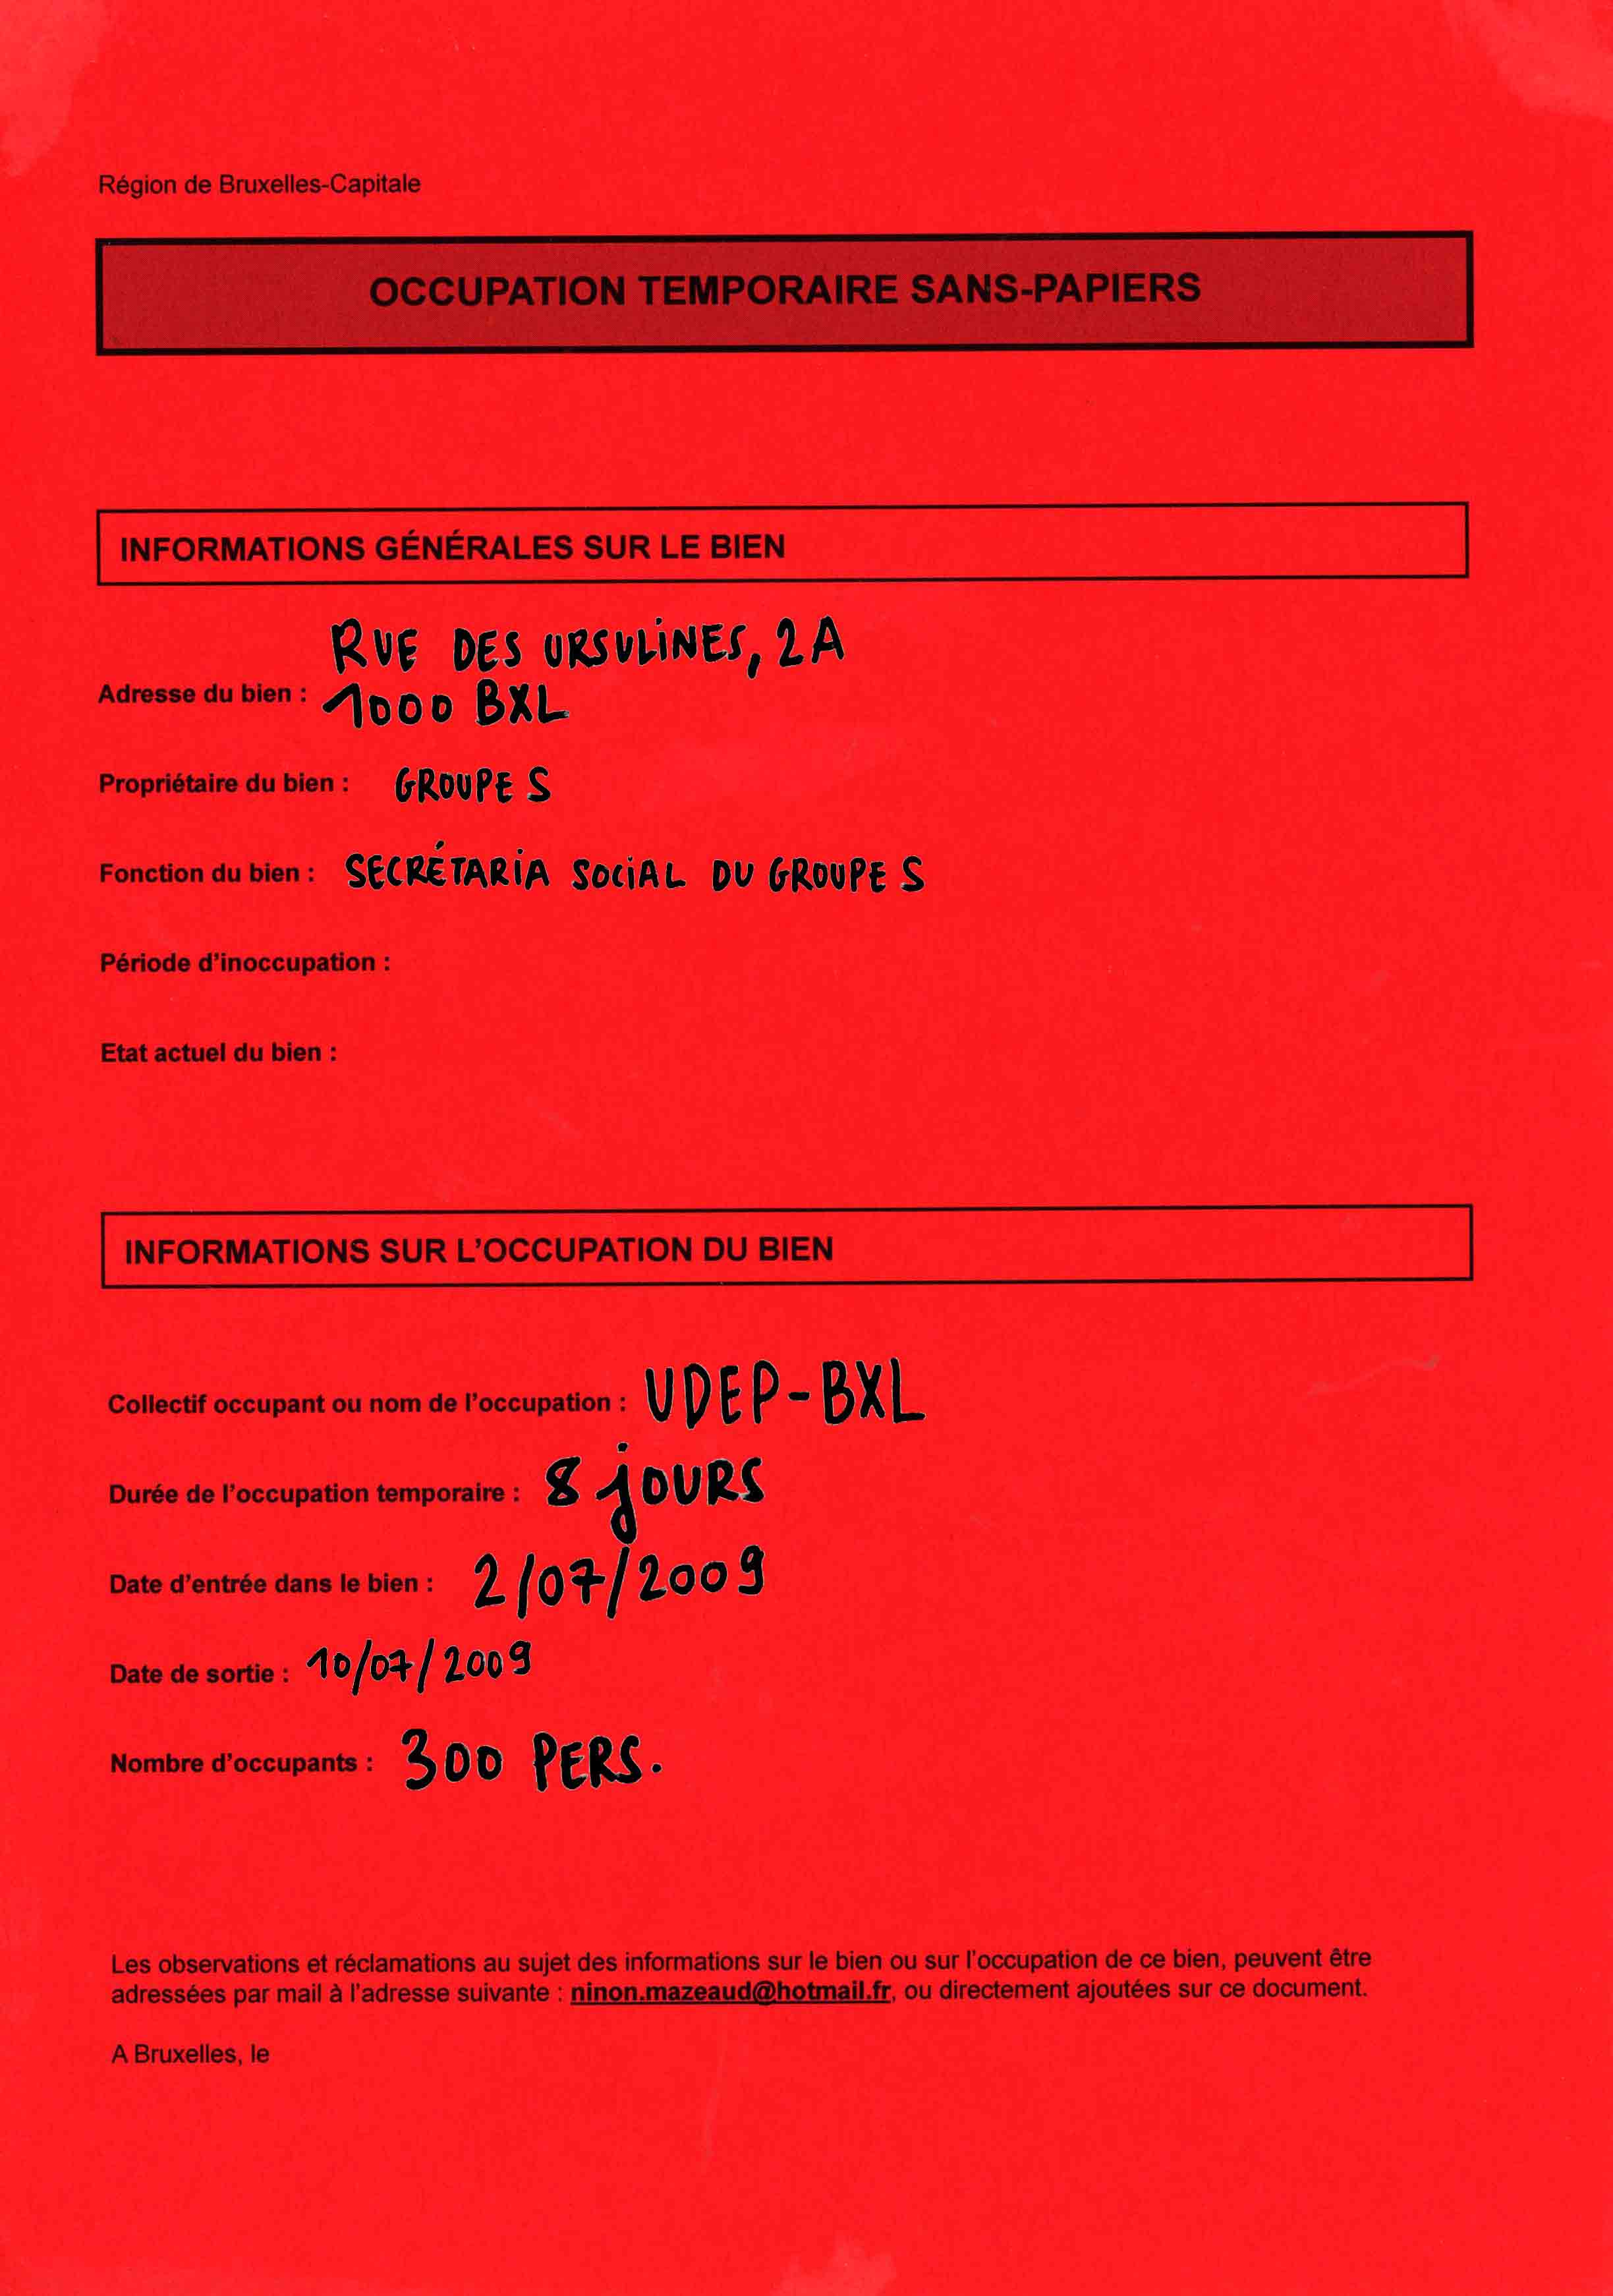 Région de Bruxelles-Capitale
OCCUPATION TEMPORAIRE SANS-PAPIERS
INFORMATIONS GÉNÉRALES SUR LE BIEN
RUE DES URSULINES, 2A
Adresse du bien : 1000 BXL
Propriétaire du bien : GROUPE S
Fonction du bien : SECRÉTARIA SOCIAL DU GROUPE S
Période d'inoccupation :
Etat actuel du bien :
INFORMATIONS SUR L'OCCUPATION DU BIEN
Collectif occupant ou nom de l'occupation : UDEP-BXL
Durée de l'occupation temporaire : 8 jOURS
Date d'entrée dans le bien : 2/07/2009
Date de sortie : 10/07/2009
Nombre d'occupants : 300 PERS.
Les observations et réclamations au sujet des informations sur le bien ou sur l'occupation de ce bien, peuvent être
adressées par mail à l'adresse suivante : ninon.mazeaud@hotmail.fr, ou directement ajoutées sur ce document.
A Bruxelles, le